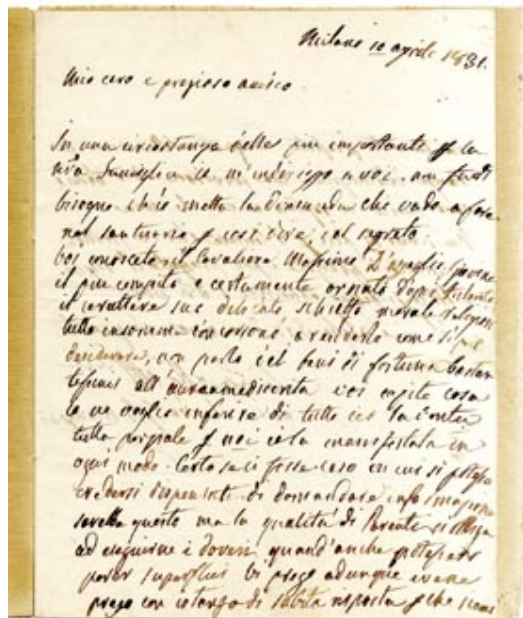 Milano 10 aprile 1831.
Mio caro e prezioso amico
In una circostanza delle più importanti p la
famiglia io m'indirizzo a voi, non
bisogno ch'io metta la domanda che vado a fare
nel santuario p così dire, del segreto.
Voi conoscete il Cavaliere Massimo D'azeglio giovine
il più compito e certamente ornato d'ogni talento
il carattere suo delicato, schietto morale
tutto insomma concorrono a renderlo come si può
desiderare, non parlo dei beni di fortuna bastan
all'aurea mediocrità voi capite cosa
io ne voglia inferire di tutto ciò la
tutta p noi ce la manifestata in
ogni modo. Certo se ci fosse caso in cui si potesse
credersi dispensati di domandare informazioni
sarebbe questo ma la qualità di Parenti ci obbliga
ad eseguirne i doveri quand'anche potessero
parer superflui vi prego adunque
prego con istanza di subita risposta p che siamo